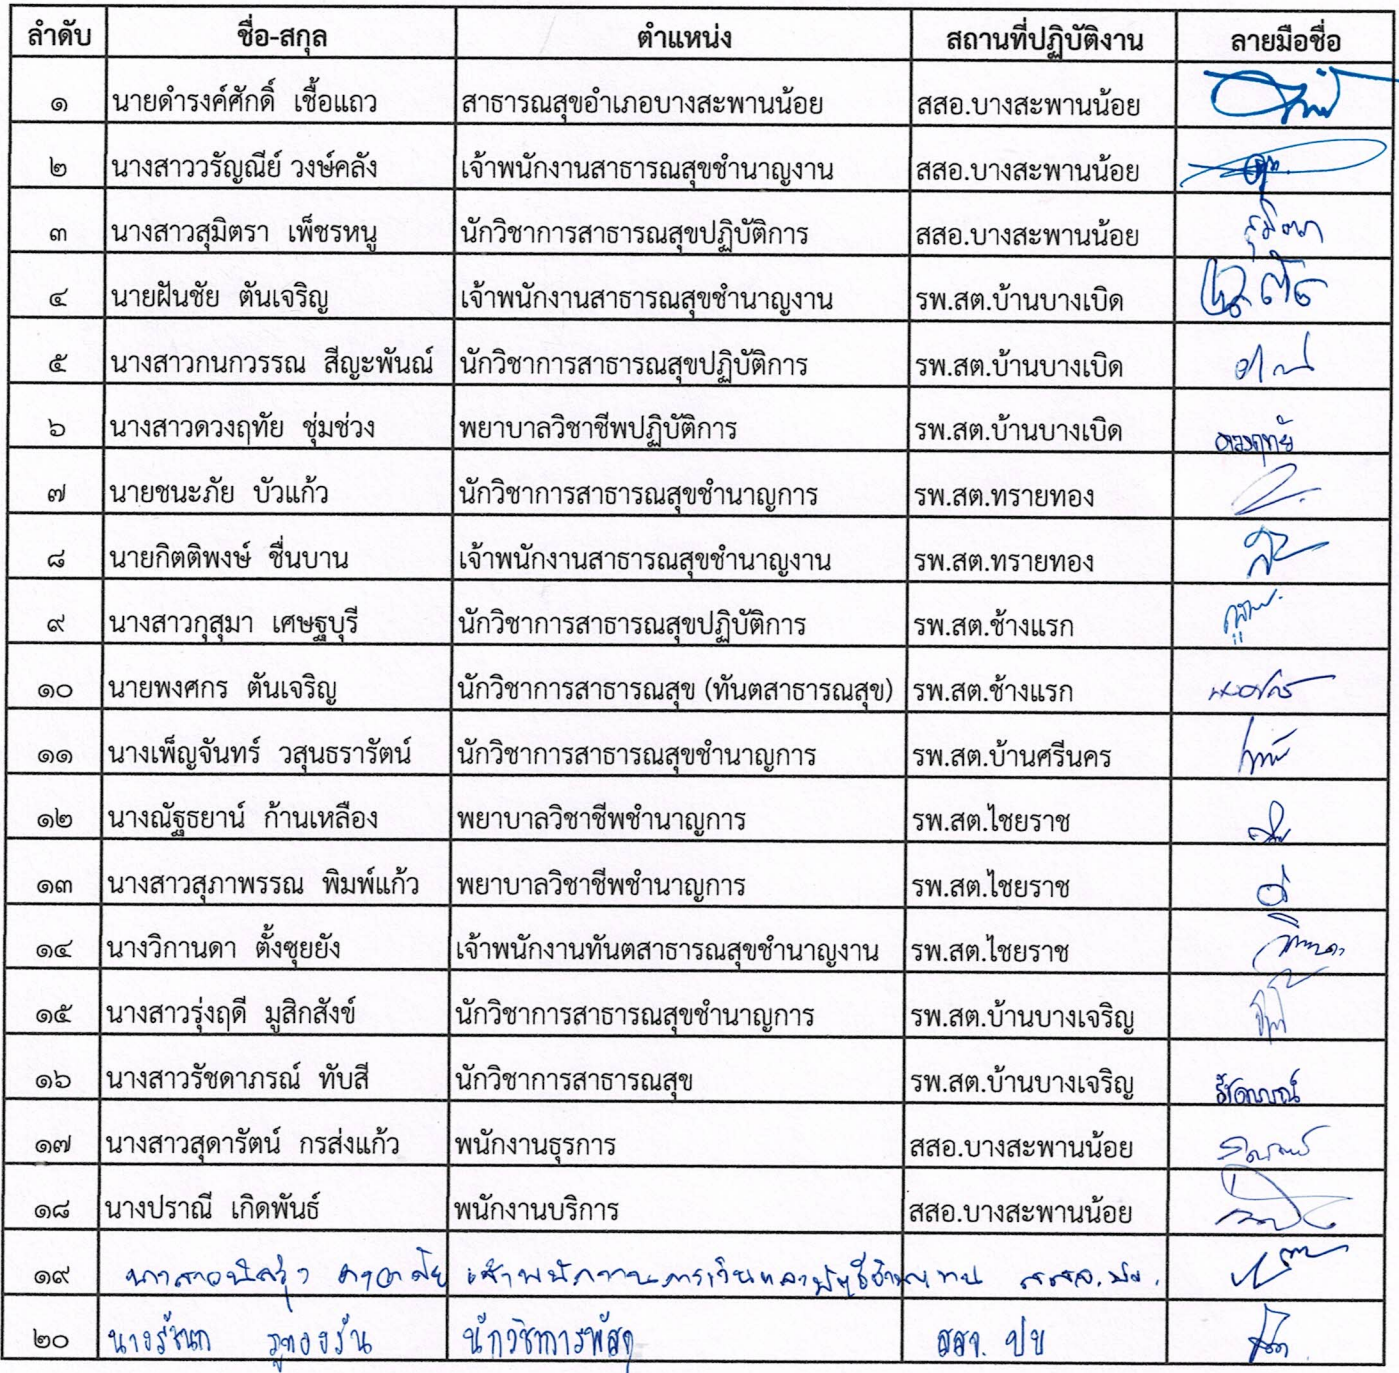 ลำดับ ชื่อ-สกุล ตำแหน่ง สถานที่ปฏิบัติงาน ลายมือชื่อ
๑ นายดำรงค์ศักดิ์ เชื้อแถว สาธารณสุขอำเภอบางสะพานน้อย สสอ.บางสะพานน้อย
๒ นางสาววรัญณีย์ วงษ์คลัง เจ้าพนักงานสาธารณสุขชำนาญงาน สสอ.บางสะพานน้อย
๓ นางสาวสุมิตรา เพ็ชรหนู นักวิชาการสาธารณสุขปฏิบัติการ สสอ.บางสะพานน้อย สุมิตรา
๔ นายฝันชัย ตันเจริญ เจ้าพนักงานสาธารณสุขชำนาญงาน รพ.สต.บ้านบางเบิด
๕ นางสาวกนกวรรณ สีญะพันณ์ นักวิชาการสาธารณสุขปฏิบัติการ รพ.สต.บ้านบางเบิด
๖ นางสาวดวงฤทัย ชุ่มช่วง พยาบาลวิชาชีพปฏิบัติการ รพ.สต.บ้านบางเบิด ดวงฤทัย
๗ นายชนะภัย บัวแก้ว นักวิชาการสาธารณสุขชำนาญการ รพ.สต.ทรายทอง
๘ นายกิตติพงษ์ ชื่นบาน เจ้าพนักงานสาธารณสุขชำนาญงาน รพ.สต.ทรายทอง
๙ นางสาวกุสุมา เศษฐบุรี นักวิชาการสาธารณสุขปฏิบัติการ รพ.สต.ช้างแรก
๑๐ นายพงศกร ตันเจริญ นักวิชาการสาธารณสุข (ทันตสาธารณสุข) รพ.สต.ช้างแรก พงศกร
๑๑ นางเพ็ญจันทร์ วสุนธรารัตน์ นักวิชาการสาธารณสุขชำนาญการ รพ.สต.บ้านศรีนคร
๑๒ นางณัฐธยาน์ ก้านเหลือง พยาบาลวิชาชีพชำนาญการ รพ.สต.ไชยราช
๑๓ นางสาวสุภาพรรณ พิมพ์แก้ว พยาบาลวิชาชีพชำนาญการ รพ.สต.ไชยราช
๑๔ นางวิกานดา ตั้งซุยยัง เจ้าพนักงานทันตสาธารณสุขชำนาญงาน รพ.สต.ไชยราช วิกานดา
๑๕ นางสาวรุ่งฤดี มูสิกสังข์ นักวิชาการสาธารณสุขชำนาญการ รพ.สต.บ้านบางเจริญ
๑๖ นางสาวรัชดาภรณ์ ทับสี นักวิชาการสาธารณสุข รพ.สต.บ้านบางเจริญ รัชดาภรณ์
๑๗ นางสาวสุดารัตน์ กรส่งแก้ว พนักงานธุรการ สสอ.บางสะพานน้อย
๑๘ นางปราณี เกิดพันธ์ พนักงานบริการ สสอ.บางสะพานน้อย
๑๙ เจ้าพนักงานการเงินและบัญชีชำนาญงาน
๒๐ นักวิชาการพัสดุ สสจ. ปข